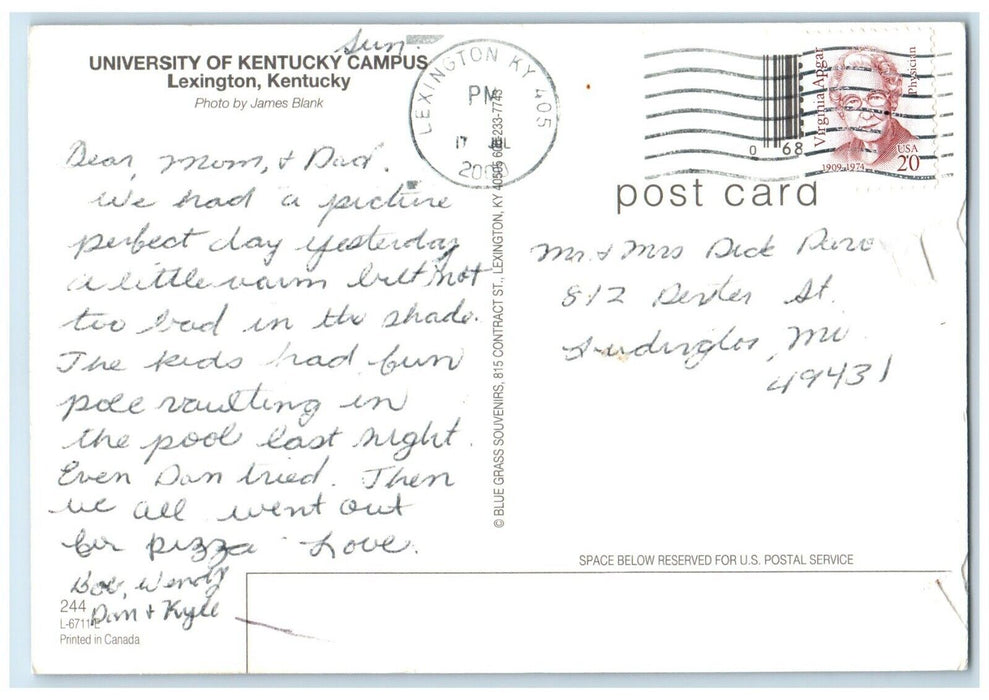 Sun.
UNIVERSITY OF KENTUCKY CAMPUS
Lexington, Kentucky
Photo by James Blank
Dear, Mom, + Dad.
We had a picture
perfect day yesterday
a little warm but not
too bad in the shade.
The kids had fun
pole vaulting in
the pool last night.
Even Dan tried. Then
we all went out
for pizza Love.
Bob, Wendy
Dan + Kyle
244
L-6711-E
Printed in Canada
© BLUE GRASS SOUVENIRS, 815 CONTRACT ST., LEXINGTON, KY 40505 606-233-7743
LEXINGTON KY 405
PM
17 JUL
2000
0 68
Virginia Apgar
Physician
1909-1974
USA
20
post card
Mr + Mrs Dick
812 Dexter St.
Ludington, Mi
49431
SPACE BELOW RESERVED FOR U.S. POSTAL SERVICE